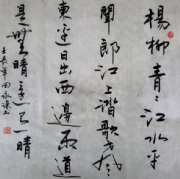 楊柳青青江水平
聞郎江上踏歌聲
東邊日出西邊雨道
是無晴還有晴